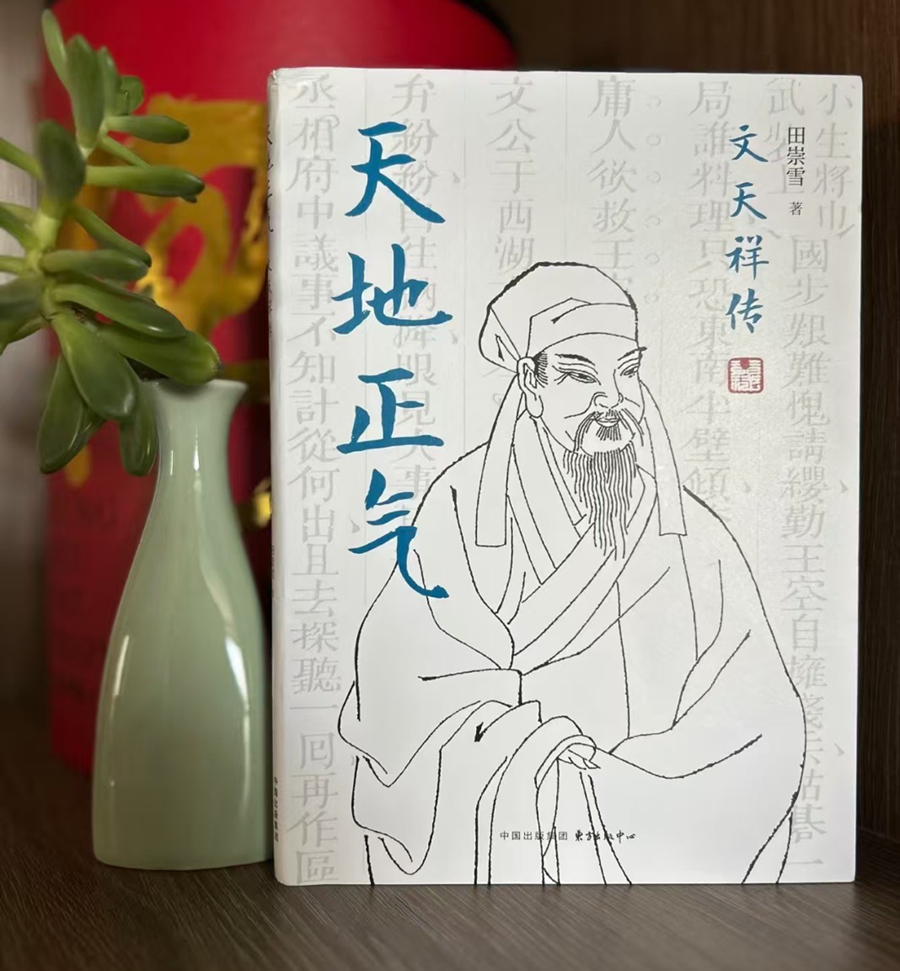 天地正气
文天祥传
田崇雪 著
小生將
武
國步艱難愧請纓勤王空自擁
局誰料理只恐東南半壁傾
庸人欲救王
文公于西湖
弁紛紛
丞相府中議事不知計從何出且去探聽一回再作區
中国出版集团 東方出版中心
中国出版集团